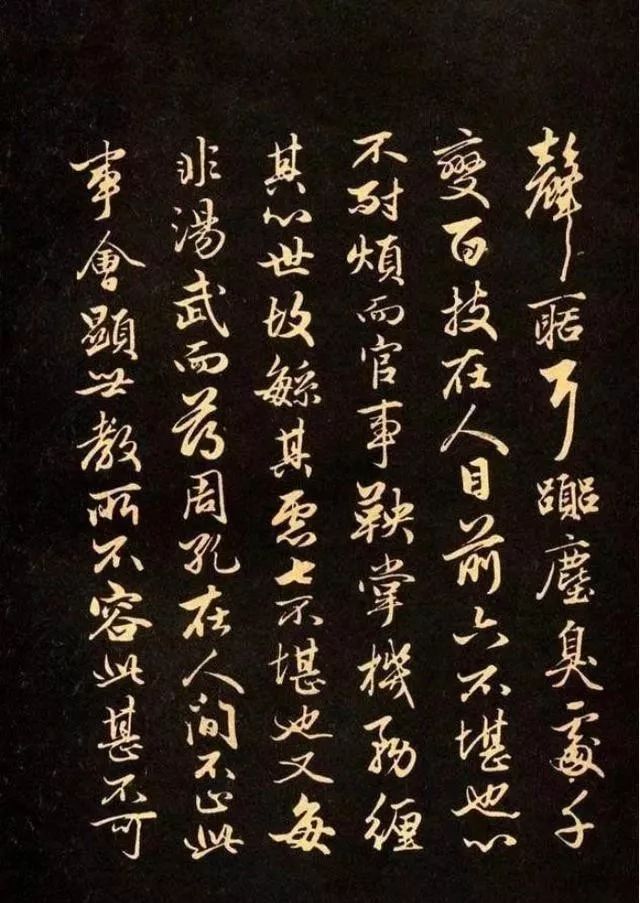 聲聒耳囂塵臭處千
變百技在人目前六不堪也心
不耐煩而官事鞅掌機務纏
其心世故緐其慮七不堪也又每
非湯武而薄周孔在人間不止此
事會顯世教所不容此甚不可